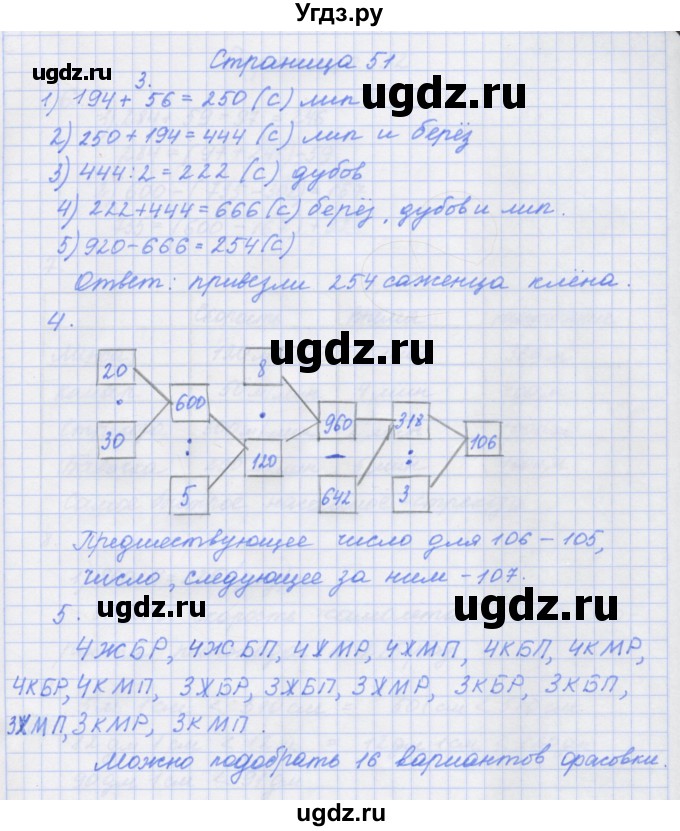 Угдз.ру
Страница 51
3.
1) 194 + 56 = 250 (с) лип
2) 250 + 194 = 444 (с) лип и берёз
3) 444 : 2 = 222 (с) дубов
4) 222 + 444 = 666 (с) берёз, дубов и лип.
5) 920 - 666 = 254 (с)
Ответ: привезли 254 саженца клёна.
4.
20 · 30
600 : 5
8 · 120
960 - 642
318 : 3
106
Предшествующее число для 106 - 105,
число, следующее за ним - 107.
5.
4ЖБР, 4ЖБП, 4ЖМР, 4ЖМП, 4КБП, 4КМР,
4КБР, 4КМП, 3ЖБР, 3ЖБП, 3ЖМР, 3КБР, 3КБП,
3ЖМП, 3КМР, 3КМП.
Можно подобрать 16 вариантов фасовки.
ugdz.ru
ugdz.ru
ugdz.ru
ugdz.ru
ugdz.ru
ugdz.ru
ugdz.ru
ugdz.ru
ugdz.ru